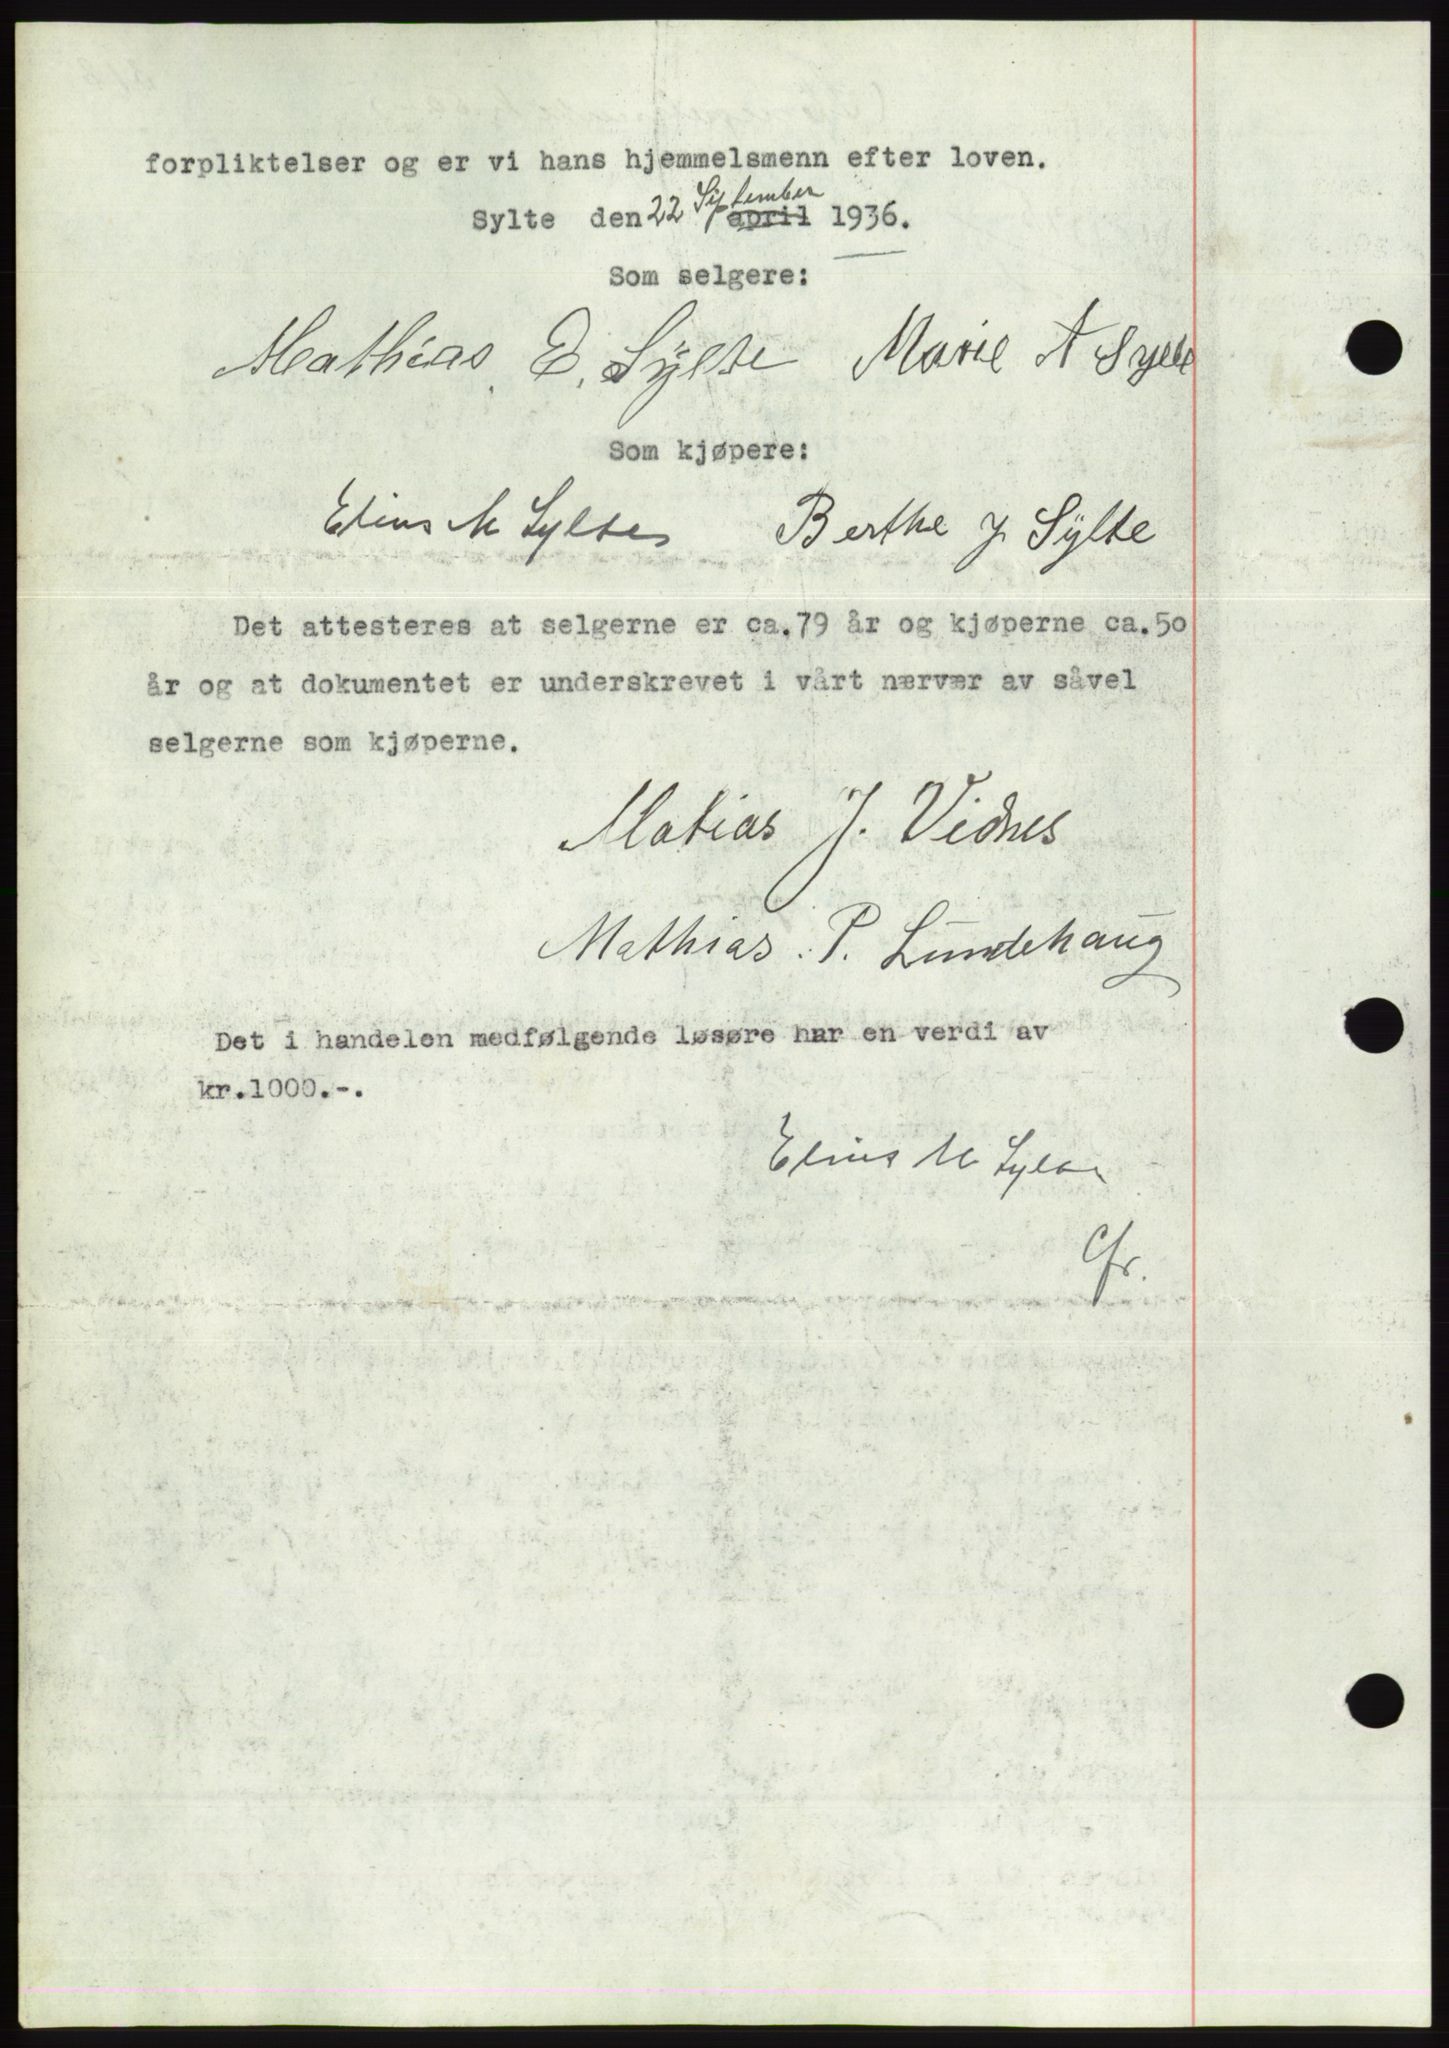 forpliktelser og er vi hans hjemmelsmenn efter loven.
September
Sylte den 22 april 1936.
Som selgere:
Mathias E. Sylte Marie A Sylte
Som kjøpere:
Elius M Sylte Berthe J Sylte
Det attesteres at selgerne er ca. 79 år og kjøperne ca. 50
år og at dokumentet er underskrevet i vårt nærvær av såvel
selgerne som kjøperne.
Matias J. Vidnes
Mathias P. Lundehaug
Det i handelen medfølgende løsøre har en verdi av
kr.1000.-.
Elius M Sylte